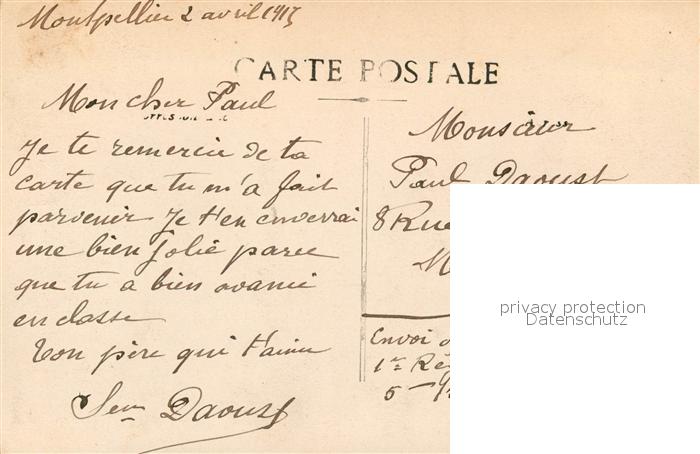 Montpellier 2 avril 1915
CARTE POSTALE
Mon cher Paul
Je te remercie de ta
carte que tu m'a fait
parvenir Je t'en enverrai
une bien jolie parce
que tu a bien avancé
en classe
Ton père qui t'aime
Daoust
Monsieur
Paul Daoust
8 Rue
M
Envoi
1er Ré
5
privacy protection
Datenschutz